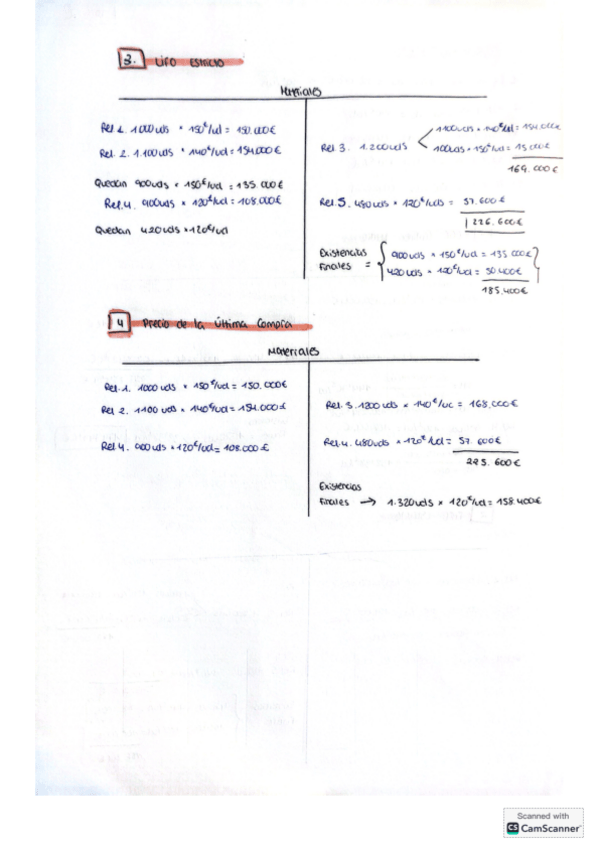 3. LIFO ESTRICTO
Materiales
Rel 1. 1000 uds × 150€/ud = 150.000€
Rel. 2. 1.100 uds × 140€/ud = 154.000€
Rel 3. 1.200 uds
1100 uds × 140€/ud = 154.000€
100 uds × 150€/ud = 15.000€
169.000€
Quedan 900 uds × 150€/ud = 135.000€
Rel. 4. 900 uds × 120€/ud = 108.000€
Rel. 5. 480 uds × 120€/uds = 57.600€
226.600€
Quedan 420 uds × 120€/ud
Existencias
Finales =
900 uds × 150€/ud = 135.000€
420 uds × 120€/ud = 50.400€
185.400€
4 Precio de la última compra
Materiales
Rel. 1. 1000 uds × 150€/ud = 150.000€
Rel 2. 1100 uds × 140€/ud = 154.000€
Rel. 3. 1200 uds × 140€/uc = 168.000€
Rel 4. 900 uds × 120€/ud = 108.000€
Rel 4. 480 uds × 120€/ud = 57.600€
225.600€
Existencias
Finales → 1.320 uds × 120€/ud = 158.400€
Scanned with
CS CamScanner